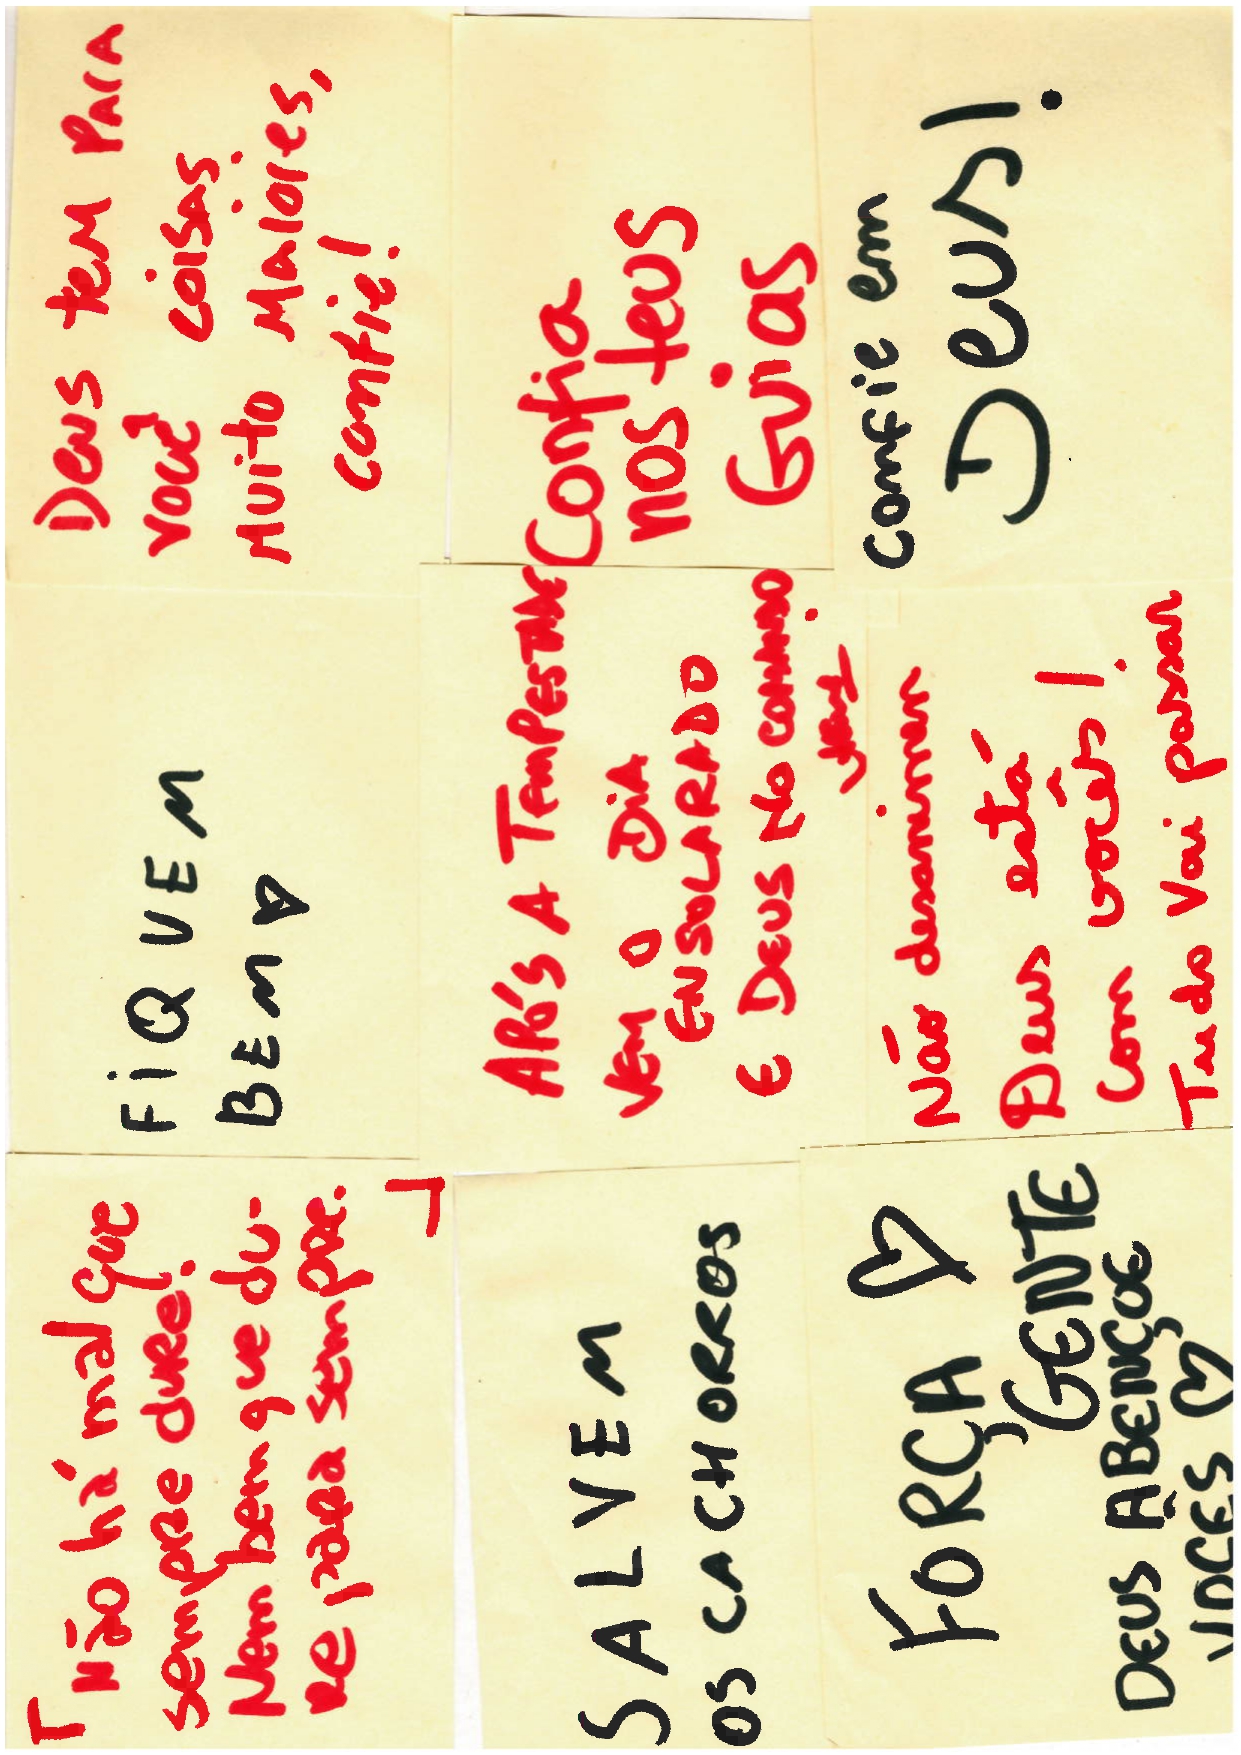 Não há mal que
sempre dure!
Nem bem que du-
re para sempre.
FiQUEM
BEM ♡
Deus tem para
você coisas
Muito Maiores,
confie!
SALVEM
OS CACHORROS
APÓS A TEMPESTADE
VEM O DIA
ENSOLARADO
E DEUS No COMANDO
Confia
nos teus
Guias
FORÇA ♡
GENTE
DEUS ABENÇOE
VOCES ♡
Não desanimem
Deus está
com vocês!
Tudo Vai passar
Confie em
Deus!